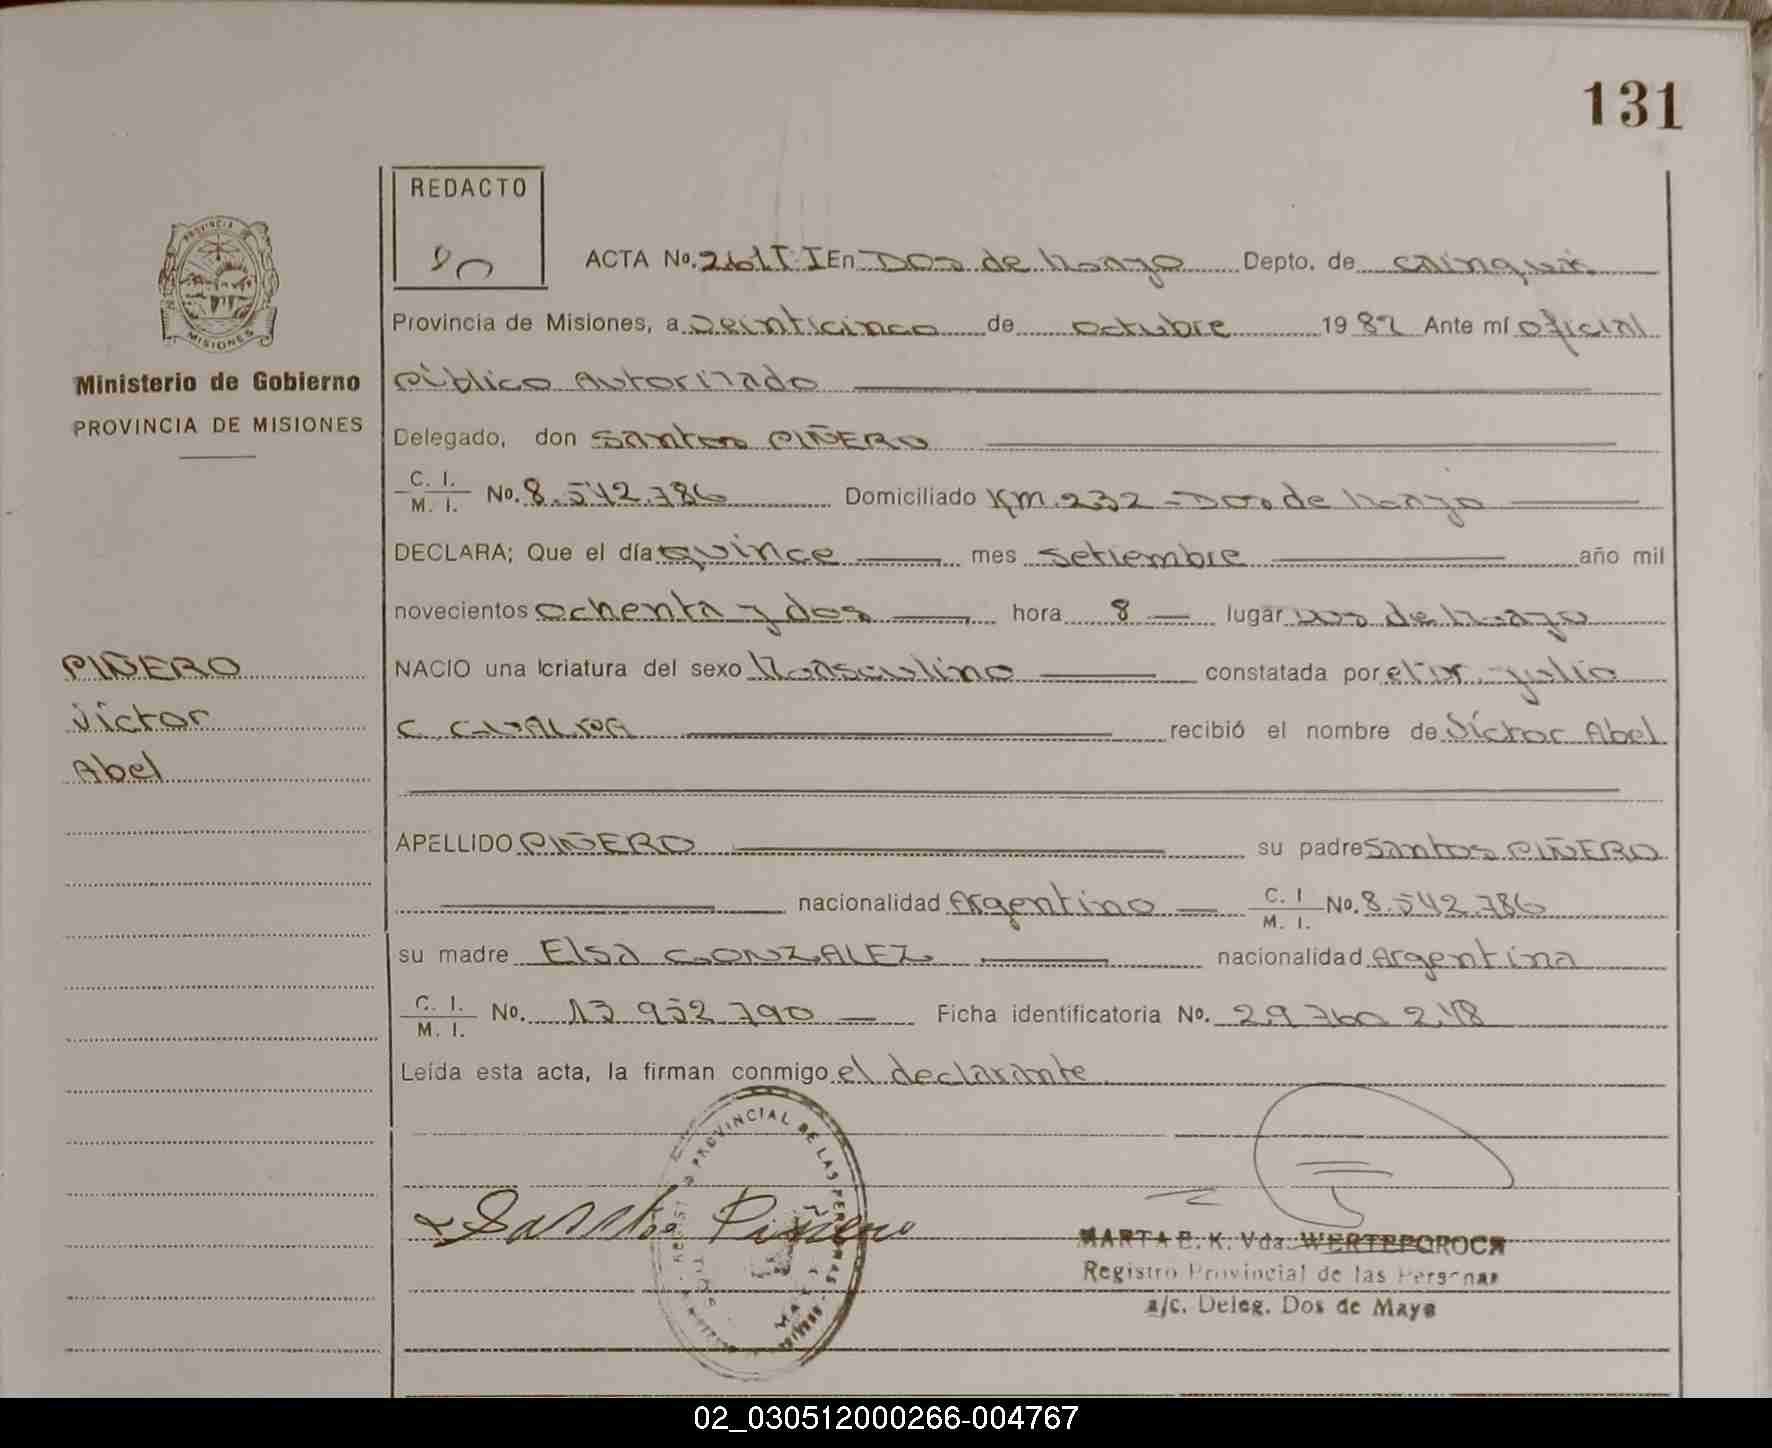 131
REDACTO
PROVINCIA
MISIONES
Ministerio de Gobierno
PROVINCIA DE MISIONES
ACTA No. 261 T I En Dos de Mayo Depto. de Cainguás
Provincia de Misiones, a Veinticinco de octubre 1982 Ante mí oficial
Público Autorizado
Delegado, don Santos PIÑERO
C. I.
M. I. No. 8.542.786 Domiciliado Km. 232 - Dos de Mayo
DECLARA; Que el día quince mes setiembre año mil
novecientos ochenta y dos hora 8 lugar Dos de Mayo
NACIO una criatura del sexo Masculino constatada por el Dr. Julio
C. recibió el nombre de Víctor Abel
PIÑERO
Víctor
Abel
APELLIDO PIÑERO su padre Santos PIÑERO
nacionalidad Argentino C. I. M. I. No. 8.542.786
su madre Elsa GONZALEZ nacionalidad Argentina
C. I.
M. I. No. 13 952 790 Ficha identificatoria No. 29.760 248
Leída esta acta, la firman conmigo el declarante
PROVINCIAL DE LAS PERSONAS
Santos Piñero
MARTA E. K. Vda. WERTEPOROCH
Registro Provincial de las Personas
a/c. Deleg. Dos de Mayo
02_030512000266-004767